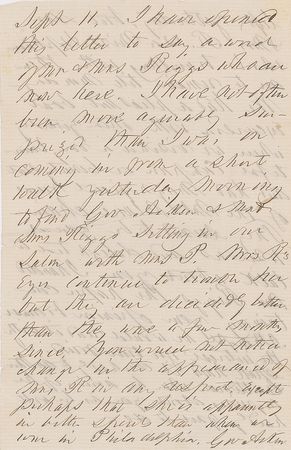 Sept 11, I have opened
this letter to say a word
of Mr & Mrs Riggs who are
now here. I have not often
been more agreeably sur-
prized than I was on
coming in from a short
walk yesterday morning
to find Gov Aiken & Mr &
Mrs Riggs sitting in our
Salon with Mrs P. Mrs R's
Eyes continue to trouble her
but they are decidedly better
than they were a few months
since. You would not notice
change in the appearance of
Mrs R in any respect except
perhaps that she is apparently
in better spirits than when we
were in Philadelphia. Gov Aiken